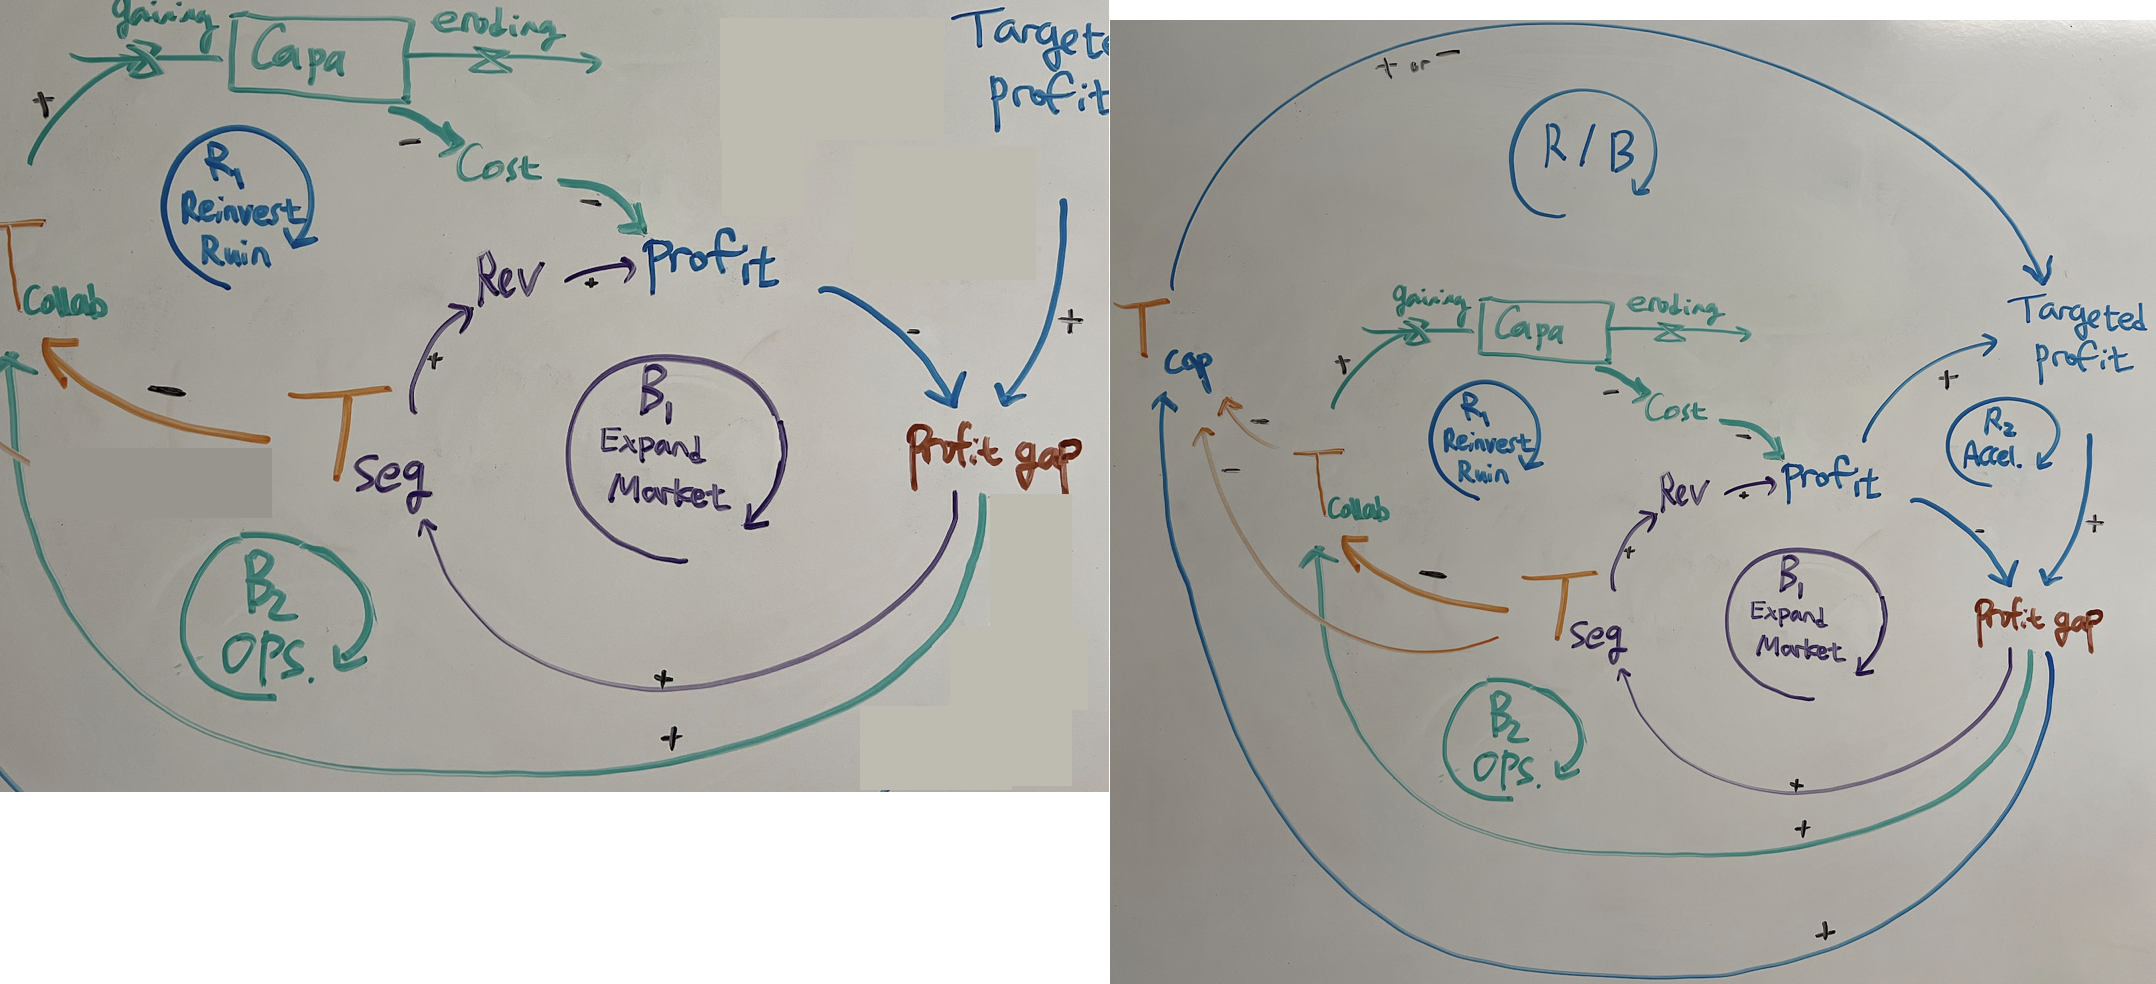 gaining
eroding
Capa
Targete
profit
+
-
Cost
-
R1
Reinvest
Ruin
T
Collab
Rev
+
Profit
-
+
+
-
T
Seg
B1
Expand
Market
Profit gap
B2
OPS.
+
+
+ or -
R / B
T
Cap
gaining
eroding
Capa
Targeted
profit
+
-
Cost
-
+
R2
Accel.
R1
Reinvest
Ruin
-
-
T
Collab
Rev
+
Profit
-
+
+
-
T
Seg
B1
Expand
Market
Profit gap
B2
OPS.
+
+
+